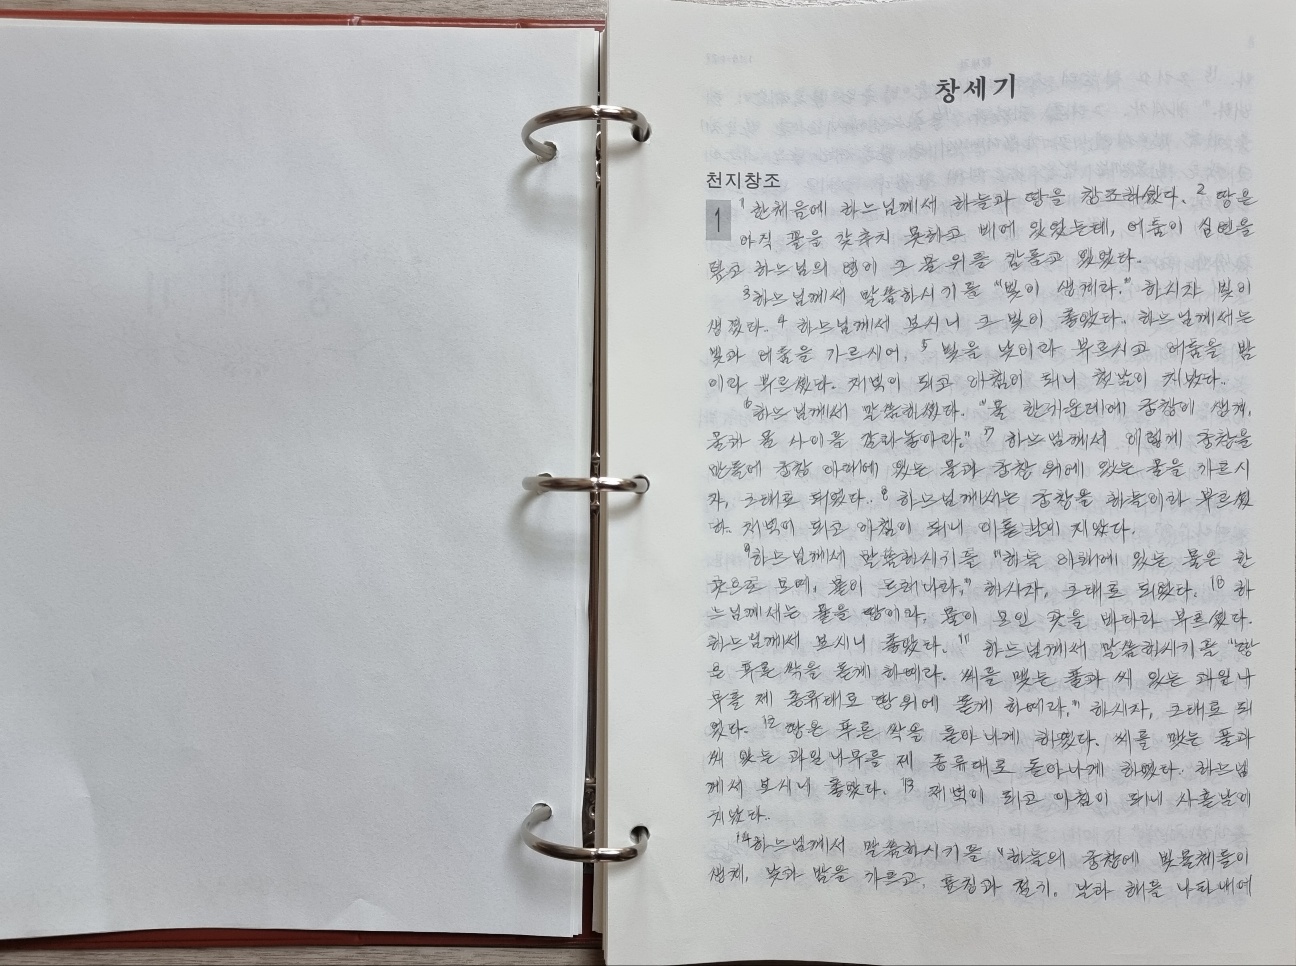 창세기
천지창조
1 1 한처음에 하느님께서 하늘과 땅을 창조하셨다. 2 땅은
아직 꼴을 갖추지 못하고 비어 있었는데, 어둠이 심연을
덮고 하느님의 영이 그 물 위를 감돌고 있었다.
3 하느님께서 말씀하시기를 "빛이 생겨라." 하시자 빛이
생겼다. 4 하느님께서 보시니 그 빛이 좋았다. 하느님께서는
빛과 어둠을 가르시어, 5 빛을 낮이라 부르시고 어둠을 밤
이라 부르셨다. 저녁이 되고 아침이 되니 첫날이 지났다.
6 하느님께서 말씀하셨다. "물 한가운데에 궁창이 생겨,
물과 물 사이를 갈라놓아라." 7 하느님께서 이렇게 궁창을
만들어 궁창 아래에 있는 물과 궁창 위에 있는 물을 가르시
자, 그대로 되었다. 8 하느님께서는 궁창을 하늘이라 부르셨
다. 저녁이 되고 아침이 되니 이튿날이 지났다.
9 하느님께서 말씀하시기를 "하늘 아래에 있는 물은 한
곳으로 모여, 뭍이 드러나라." 하시자, 그대로 되었다. 10 하
느님께서는 뭍을 땅이라, 물이 모인 곳을 바다라 부르셨다.
하느님께서 보시니 좋았다. 11 하느님께서 말씀하시기를 "땅
은 푸른 싹을 돋게 하여라. 씨를 맺는 풀과 씨 있는 과일나
무를 제 종류대로 땅 위에 돋게 하여라." 하시자, 그대로 되
었다. 12 땅은 푸른 싹을 돋아나게 하였다. 씨를 맺는 풀과
씨 있는 과일나무를 제 종류대로 돋아나게 하였다. 하느님
께서 보시니 좋았다. 13 저녁이 되고 아침이 되니 사흗날이
지났다.
14 하느님께서 말씀하시기를 "하늘의 궁창에 빛물체들이
생겨, 낮과 밤을 가르고, 표징과 절기, 날과 해를 나타내어